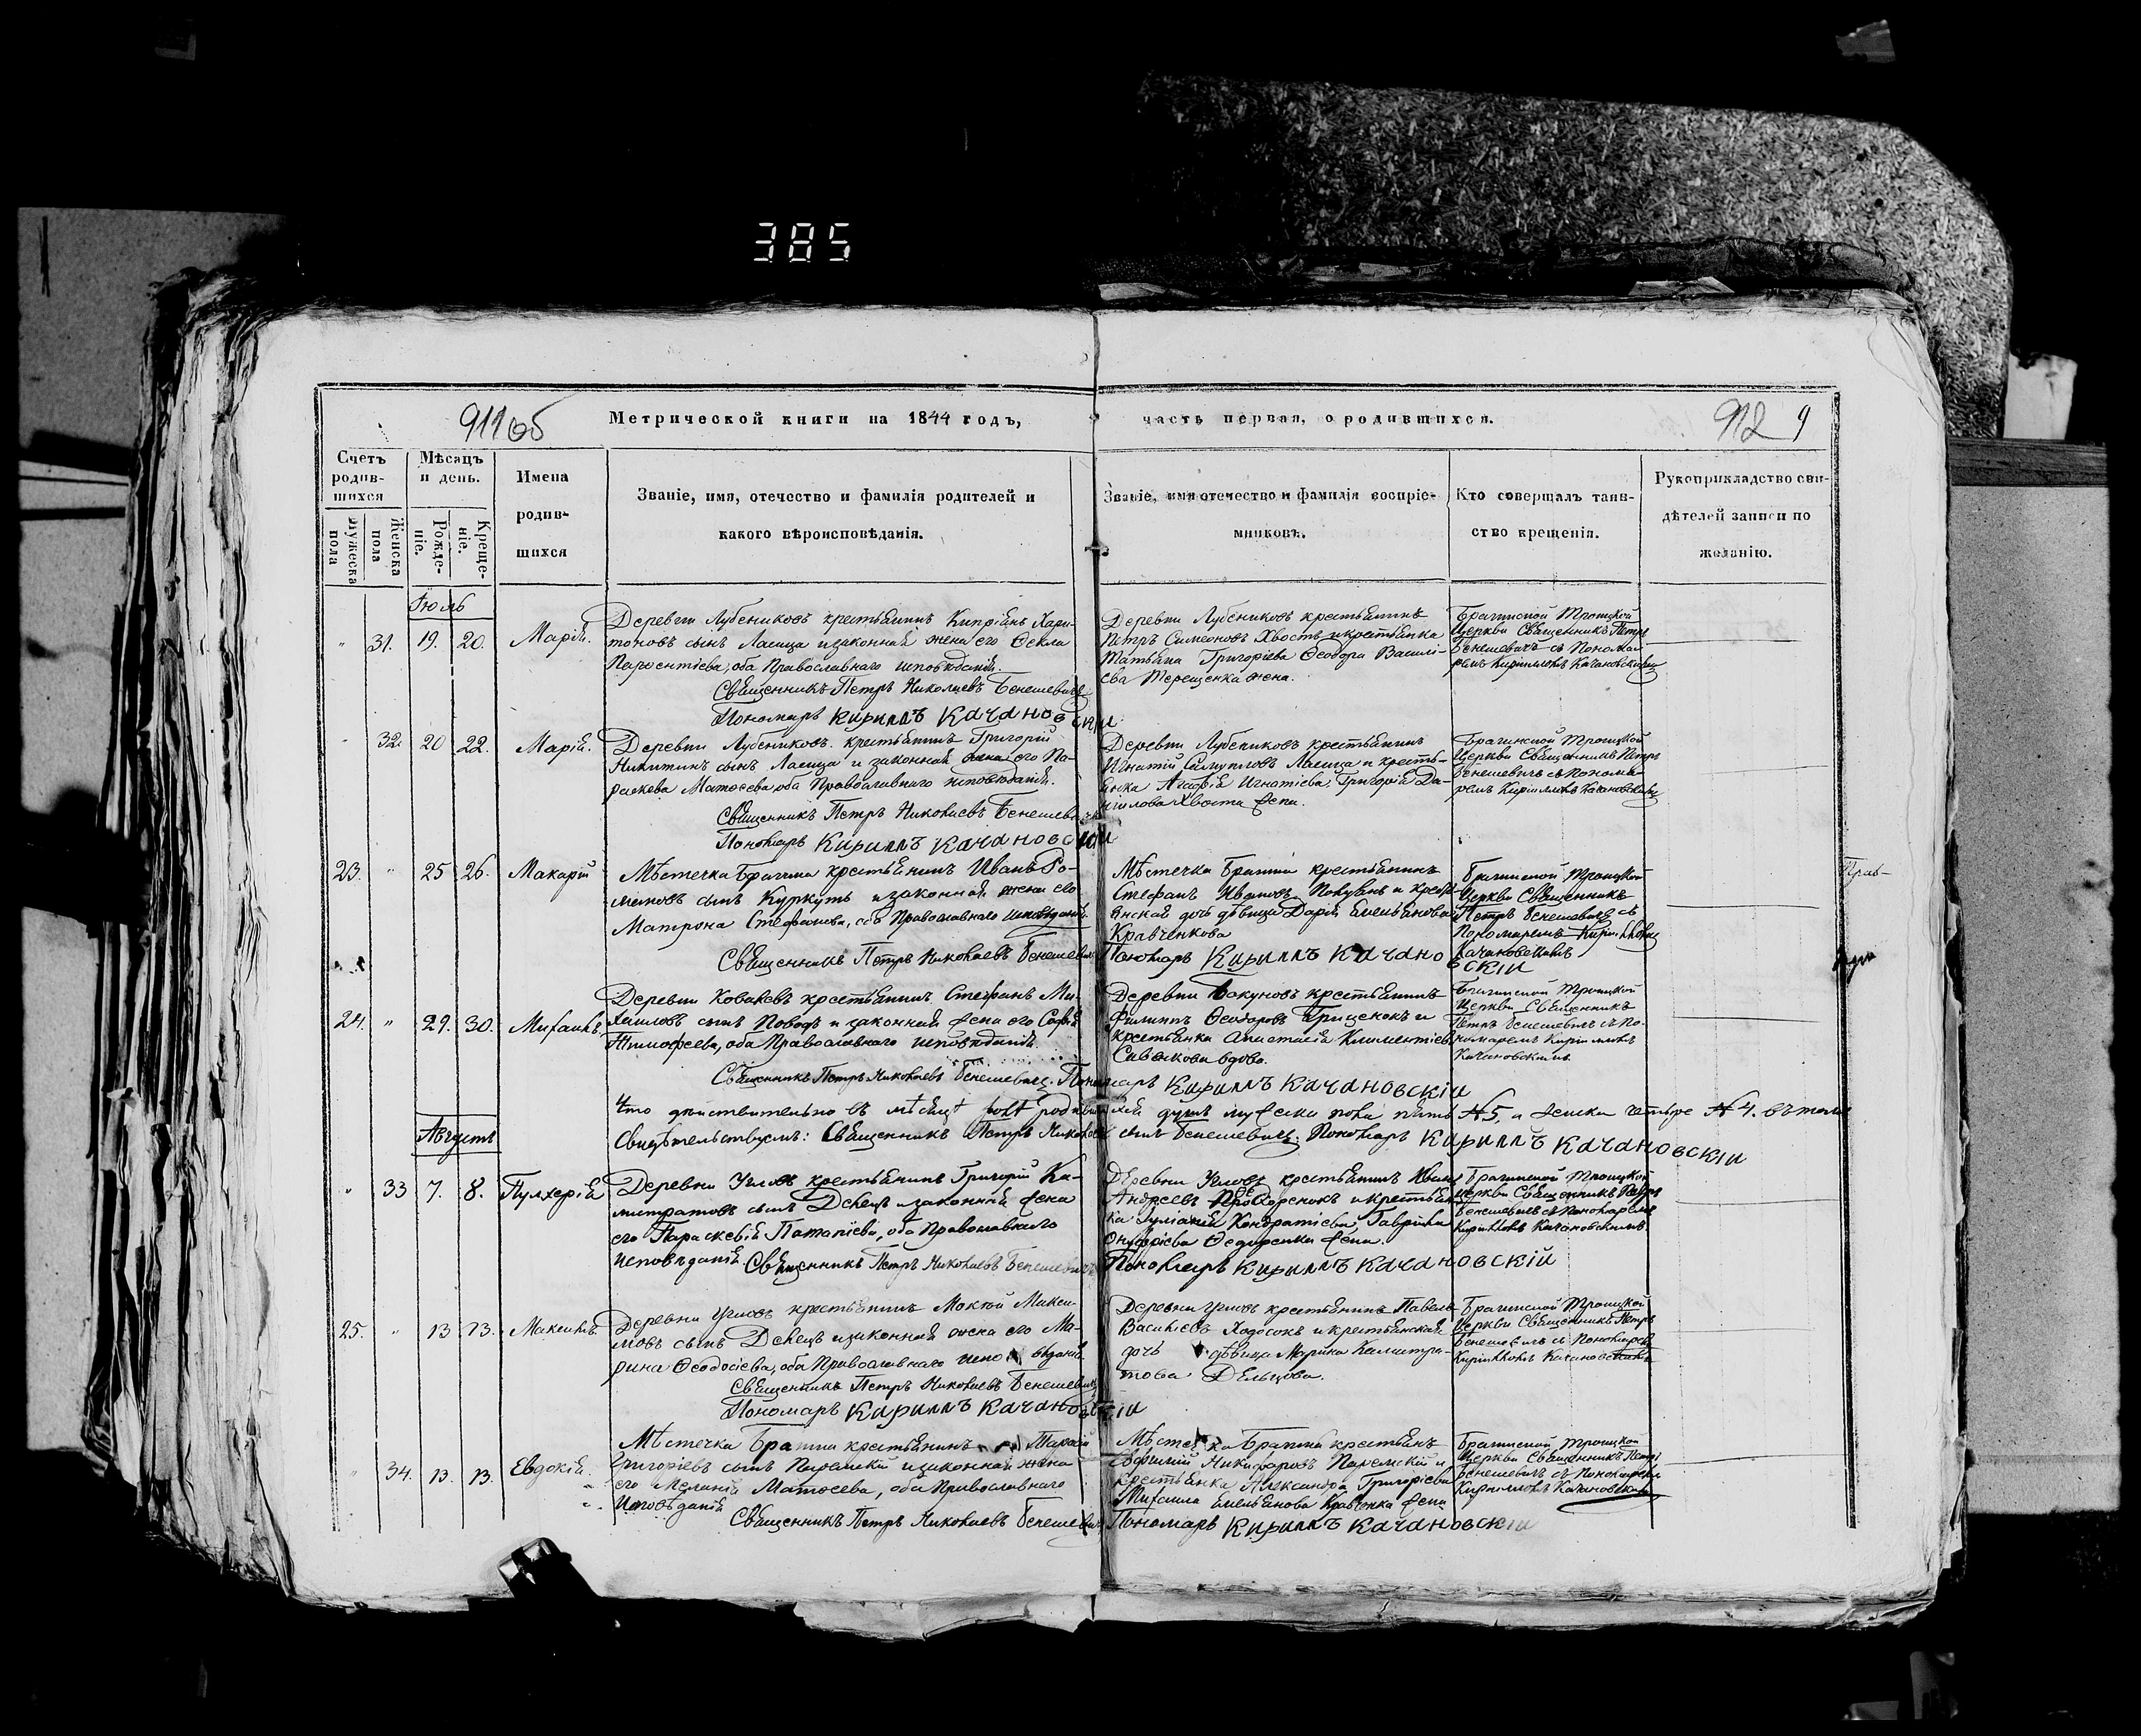 385
911об
Метрической книги на 1844 годъ,
часть первая, о родившихся.
912 9
Счетъ родив-шихся
Мужеска пола
Женска пола
Мѣсяцъ и день.
Рожде-ніе.
Креще-ніе.
Имена
родив-
шихся
Званіе, имя, отечество и фамилія родителей и
какого вѣроисповѣданія.
Званіе, имя отечество и фамилія воспріе-
мниковъ.
Кто совершалъ таин-
ство крещенія.
Рукоприкладство сви-
дѣтелей записи по
желанію.
Іюль
31. 19. 20. Марія.
Деревни Лубениковъ крестьянинъ Кипріянъ Хари-
тоновъ сынъ Ласица и законная жена его Ѳекла
оба Православнаго исповѣданія.
Священникъ Петръ Николаевъ Бенешевичъ
Пономарь Кириллъ Качановскій
Деревни Лубениковъ крестьянинъ
Петръ Симеоновъ Хвостъ и крестьянка
Татьяна Григоріева Ѳеодора Василі-
ева Терещенка жена.
Брагинской Троицкой
Церкви Священникъ Петръ
Бенешевичъ съ Понома-
ремъ Кирилломъ Качановскимъ
32. 20 22. Марія.
Деревни Лубениковъ крестьянинъ Григорій
Никитинъ сынъ Ласица и законная жена его Па-
раскева Матѳеева оба Православнаго исповѣданія.
Священникъ Петръ Николаевъ Бенешевичъ
Пономарь Кириллъ Качановскій
Деревни Лубениковъ крестьянинъ
Игнатій Ласица и кресть-
янка Агафія Игнатіева Григорія Да-
ниилова Хвоста жена.
Брагинской Троицкой
Церкви Священникъ Петръ
Бенешевичъ съ Понома-
ремъ Кирилломъ Качановскимъ
23. 25 26. Макарій
Мѣстечка Брагина крестьянинъ Иванъ Ро-
мановъ сынъ Куркуть и законная жена его
Матрона Стефанова, оба Православнаго исповѣданія.
Священникъ Петръ Николаевъ Бенешевичъ
Мѣстечка Брагина крестьянинъ
Стефанъ Ивановъ и кресть-
янская дочь дѣвица Дарія Емельянова
Кравченкова
Пономарь Кириллъ Качановскій
Брагинской Троицкой
Церкви Священникъ
Петръ Бенешевичъ съ
Пономаремъ Кирилломъ
Качановскимъ
Прав-
24. 29. 30. Михаилъ.
Деревни Ковалевъ крестьянинъ Стефанъ Ми-
хаиловъ сынъ Поводъ и законная жена его Софія
Тимофеева, оба Православнаго исповѣданія
Священникъ Петръ Николаевъ Бенешевичъ. Пономарь Кириллъ Качановскій
Деревни Бакуновъ крестьянинъ
Филиппъ Ѳеодоровъ Грищенокъ и
крестьянка Анастасія Климентіева
Савенкова вдова.
Брагинской Троицкой
Церкви Священникъ
Петръ Бенешевичъ съ По-
номаремъ Кирилломъ
Качановскимъ
Что дѣйствительно въ мѣсяцѣ іюлѣ родившихся душъ мужеска пола пять №5, а женска четыре №4. въ томъ
Свидѣтельствуемъ: Священникъ Петръ Николаевъ сынъ Бенешевичъ. Пономарь Кириллъ Качановскій
Августъ
33 7. 8. Пулхерія
Деревни Угловъ крестьянинъ Григорій Ка-
литратовъ сынъ Делецъ и законная жена
его Параскевія Патапіева, оба Православнаго
исповѣданія. Священникъ Петръ Николаевъ Бенешевичъ
Деревни Угловъ крестьянинъ Иванъ
Андреевъ Прохоренокъ и крестьян-
ка Іуліанія Кондратіева Гавріила
Онуфріева Ѳедоренка жена.
Пономарь Кириллъ Качановскій
Брагинской Троицкой
Церкви Священникъ Петръ
Бенешевичъ съ Пономаремъ
Кирилломъ Качановскимъ
25. 13 13. Максимъ.
Деревни Угловъ крестьянинъ Мокій Макси-
мовъ сынъ Делецъ и законная жена его Ма-
рина Ѳеодосіева, оба Православнаго исповѣданія
Священникъ Петръ Николаевъ Бенешевичъ
Пономарь Кириллъ Качановскій
Деревни Угловъ крестьянинъ Павелъ
Васильевъ Ходосокъ и крестьянская
дочь дѣвица Марина Калистра-
това Дельцова.
Брагинской Троицкой
Церкви Священникъ Петръ
Бенешевичъ съ Пономаремъ
Кирилломъ Качановскимъ
34. 13. 13. Евдокія.
Мѣстечка Брагина крестьянинъ Тарасій
Григоріевъ сынъ и законная жена
его Меланія Матѳеева, оба Православнаго
Исповѣданія
Священникъ Петръ Николаевъ Бенешевичъ
Мѣстечка Брагина крестьянъ
Евфимій Никифоровъ и
крестьянка Александра Григоріева
Михаила Емельянова Кравченка жена
Пономарь Кириллъ Качановскій
Брагинской Троицкой
Церкви Священникъ Петръ
Бенешевичъ съ Пономаремъ
Кирилломъ Качановскимъ